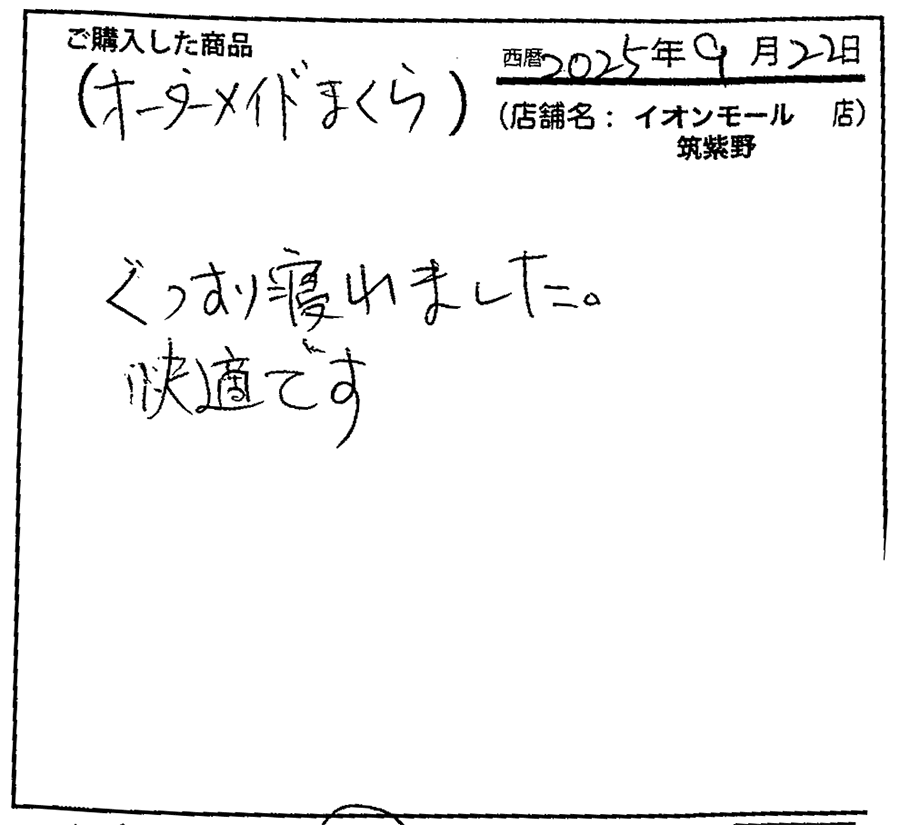 ご購入した商品
(オーダーメイドまくら)
西暦2025年9月22日
(店舗名：イオンモール 店)
筑紫野
ぐっすり寝れました。
快適です